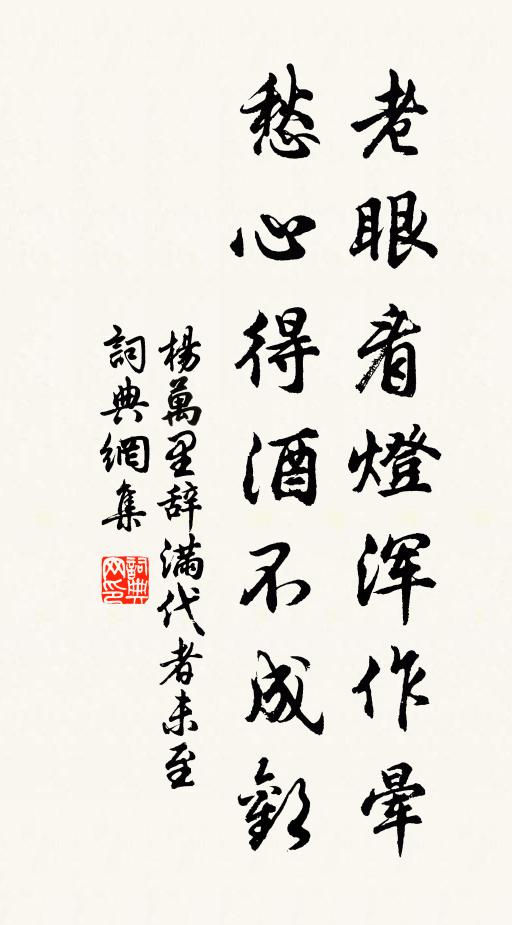 老眼看燈浑作暈
愁心得酒不成歡
楊萬里辞滿代者未至
詞典網集
詞典网印